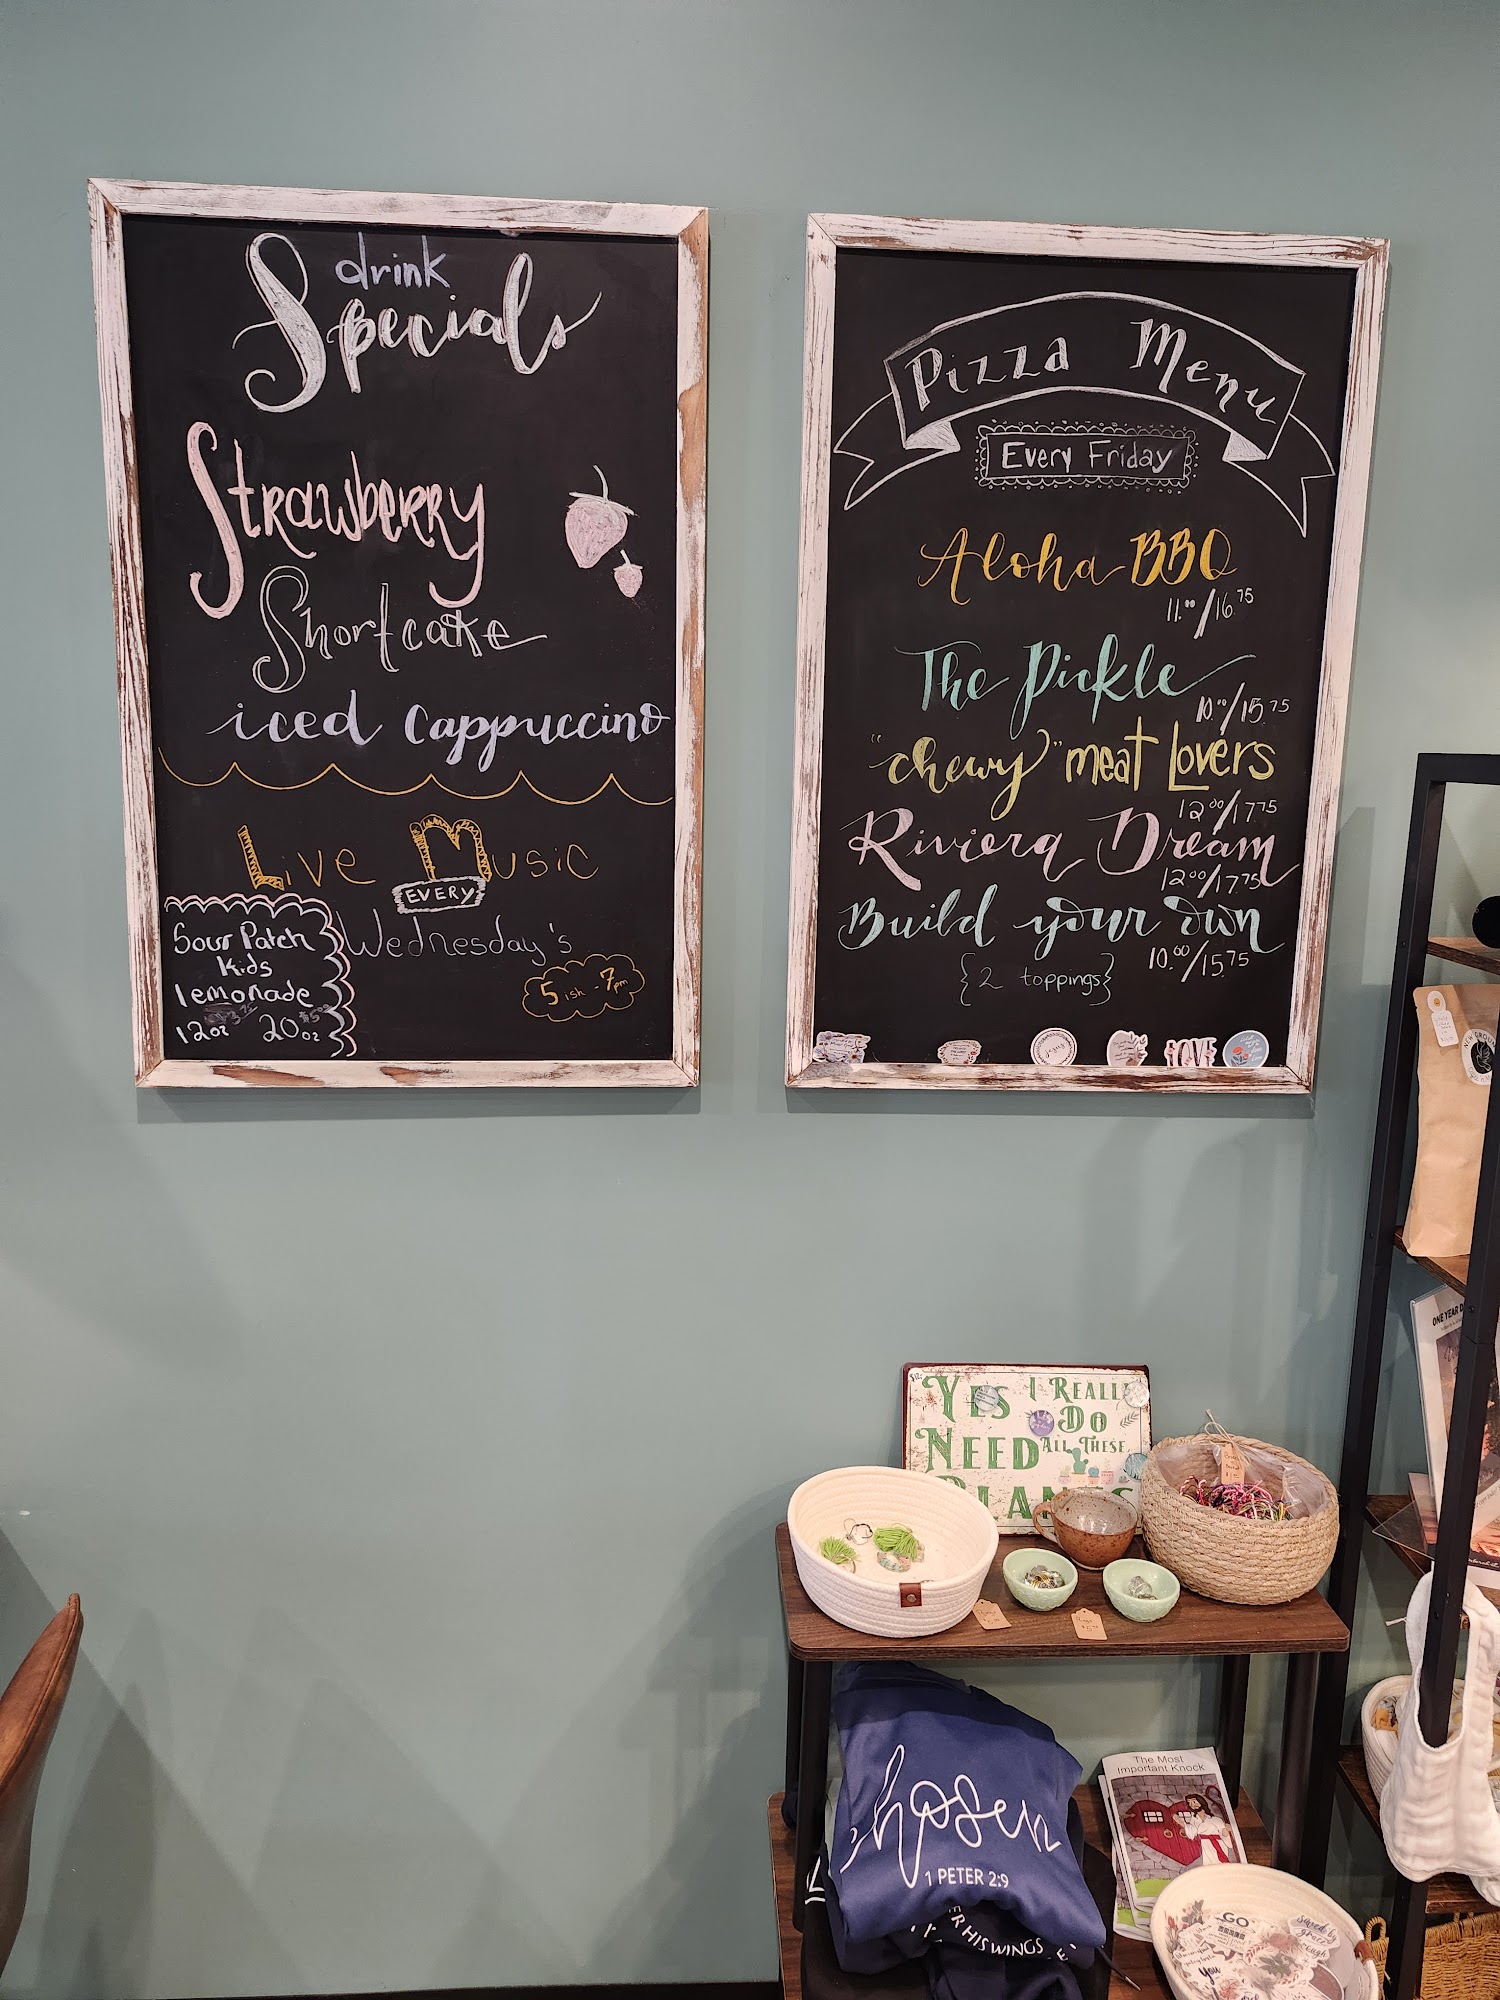 drink
Specials
Strawberry
Shortcake
iced cappuccino
Live Music
EVERY
Wednesday's
5ish - 7pm
Sour Patch
Kids
lemonade
12oz 20oz
Pizza Menu
Every Friday
Aloha BBQ
11.00/16.75
The Pickle
10.00/15.75
"chewy" meat Lovers
12.00/17.75
Riviera Dream
12.00/17.75
Build your own
10.00/15.75
{2 toppings}
LOVE
ONE YEAR
YES I REALLY
DO
NEED ALL THESE
PLANTS
Chosen
1 PETER 2:9
HIS WINGS
The Most
Important Knock
GO
Saved by
grace
through
You